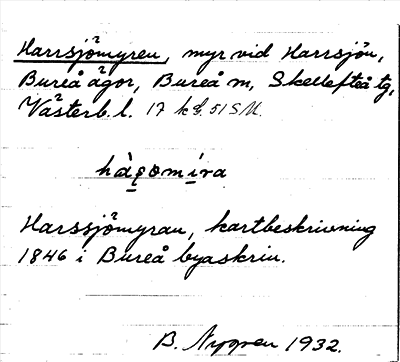 Harrsjömyren, myr vid Harrsjön,
Bureå ägor, Bureå m, Skellefteå tg,
Västerb. l. 17 kd. 51 SM.
hàʂomíra
Harssjömyran, kartbeskrivning
1846 i Bureå byaskrin.
B. Nygren 1932.